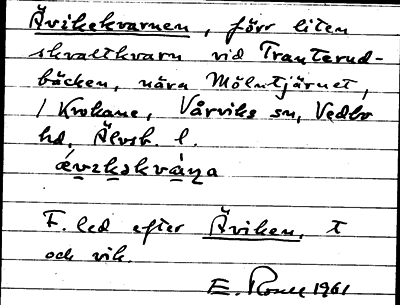 Åvikekvarnen, förr liten
skvaltkvarn vid Tranterud-
bäcken, nära Mölntjärnet,
/ Krokane, Vårviks sn, Vedbo
hd, Älvsb. l.
F. led efter Åviken, t
och vik.
E. 1961